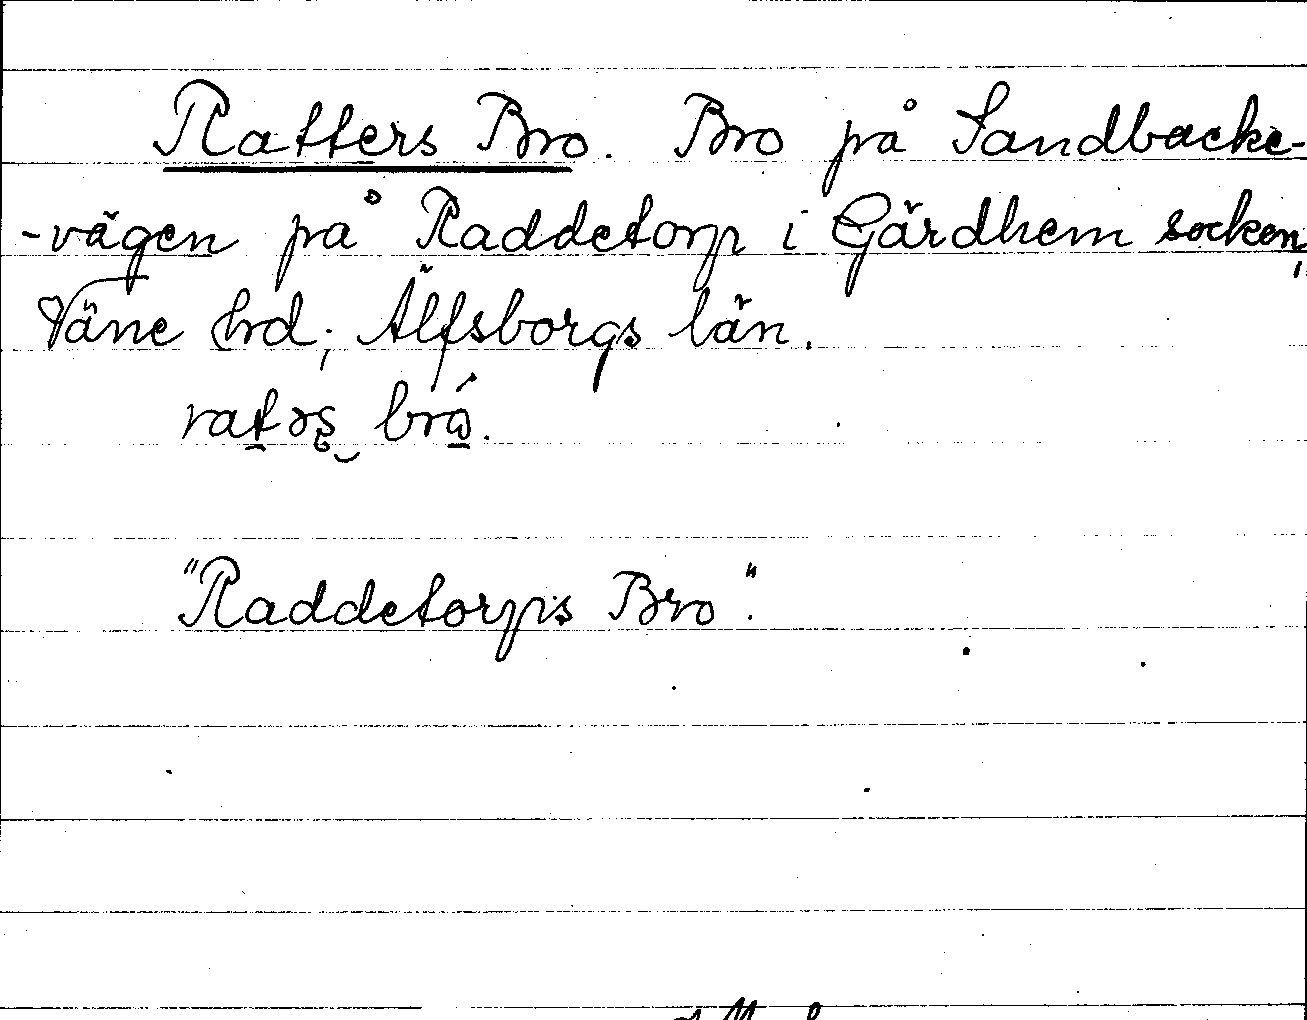 Ratters Bro. Bro på Sandbacke-
-vägen på Raddetorp i Gärdhem socken,
Väne hrd; Älfsborgs län.
"Raddetorps Bro".